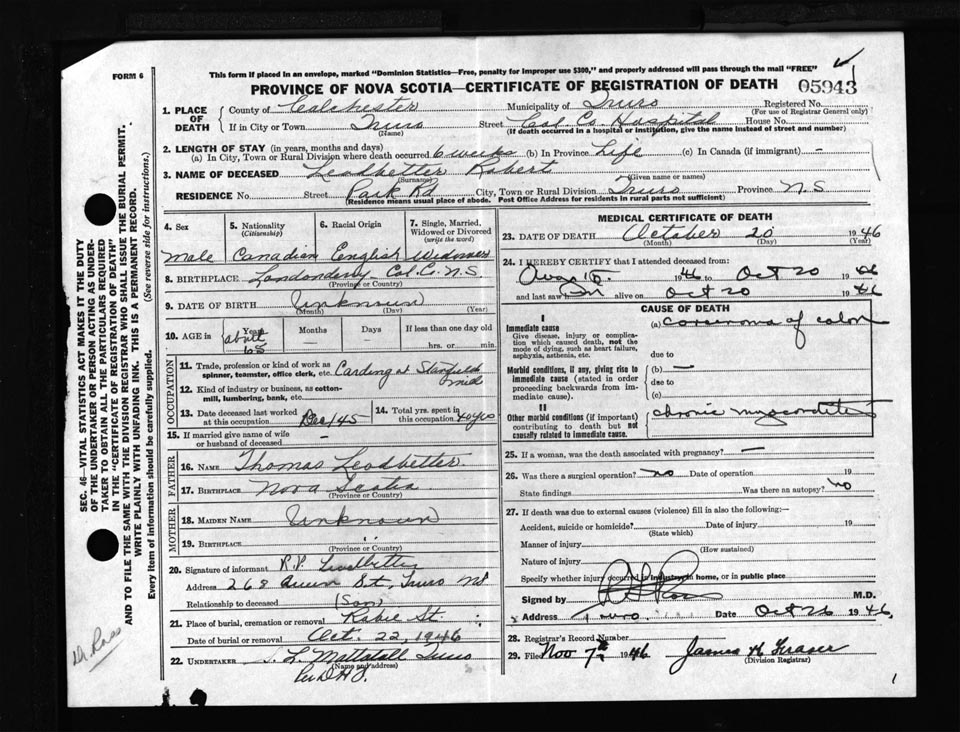 FORM 6
This form if placed in an envelope, marked "Dominion Statistics—Free, penalty for improper use $300," and properly addressed will pass through the mail "FREE"
PROVINCE OF NOVA SCOTIA—CERTIFICATE OF REGISTRATION OF DEATH
05943
1. PLACE OF DEATH
County of Colchester Municipality of Truro Registered No.
(For use of Registrar General only)
If in City or Town Truro Street Col. Co Hospital House No.
(Name) (If death occurred in a hospital or institution, give the name instead of street and number)
2. LENGTH OF STAY (in years, months and days)
(a) In City, Town or Rural Division where death occurred 6 weeks (b) In Province Life (c) In Canada (if immigrant) —
3. NAME OF DECEASED Leadbetter Robert
(Surname) (Given name or names)
RESIDENCE No. Street Park Rd City, Town or Rural Division Truro Province N.S
(Residence means usual place of abode. Post Office Address for residents in rural parts not sufficient)
4. Sex 5. Nationality (Citizenship) 6. Racial Origin 7. Single, Married, Widowed or Divorced (write the word)
Male Canadian English Widower
8. BIRTHPLACE Londonderry Col. C. N.S
(Province or Country)
9. DATE OF BIRTH Unknown
(Month) (Day) (Year)
10. AGE in Years Months Days If less than one day old
about 65 hrs. or min.
OCCUPATION
11. Trade, profession or kind of work as spinner, teamster, office clerk, etc. Carding at Stanfield
12. Kind of industry or business, as cotton-mill, lumbering, bank, etc.
13. Date deceased last worked at this occupation Dec/45 14. Total yrs. spent in this occupation 40 yrs
15. If married give name of wife or husband of deceased –
FATHER
16. NAME Thomas Leadbetter
17. BIRTHPLACE Nova Scotia
(Province or Country)
MOTHER
18. MAIDEN NAME Unknown
19. BIRTHPLACE "
(Province or Country)
20. Signature of informant R.P. Leadbetter
Address 268 Queen St, Truro NS
Relationship to deceased (Son)
21. Place of burial, cremation or removal Robie St.
Date of burial or removal Oct. 22, 1946
22. UNDERTAKER L. Mattatall Truro
(Name and address)
MEDICAL CERTIFICATE OF DEATH
23. DATE OF DEATH October 20 1946
(Month) (Day) (Year)
24. I HEREBY CERTIFY that I attended deceased from:
Aug 15 1946 to Oct 20 1946
and last saw alive on Oct 20 1946
CAUSE OF DEATH
I
Immediate cause (a) carcinoma of colon
Give disease, injury or complication which caused death, not the mode of dying, such as heart failure, asphyxia, asthenia, etc.
due to
Morbid conditions, if any, giving rise to immediate cause (stated in order proceeding backwards from immediate cause).
(b) —
due to
(c)
II
Other morbid conditions (if important) contributing to death but not causally related to immediate cause.
chronic myocarditis
25. If a woman, was the death associated with pregnancy? —
26. Was there a surgical operation? no Date of operation 19
State findings Was there an autopsy? no
27. If death was due to external causes (violence) fill in also the following:—
Accident, suicide or homicide? Date of injury 19
(State which)
Manner of injury
(How sustained)
Nature of injury
Specify whether injury occurred in industry, in home, or in public place
Signed by M.D.
Address Truro Date Oct 26 1946
28. Registrar's Record Number
29. Filed Nov 7th 1946 James H Fraser
(Division Registrar)
SEC. 46—VITAL STATISTICS ACT MAKES IT THE DUTY
OF THE UNDERTAKER OR PERSON ACTING AS UNDERTAKER TO OBTAIN ALL THE PARTICULARS REQUIRED
IN THE "CERTIFICATE OF REGISTRATION OF DEATH"
AND TO FILE THE SAME WITH THE DIVISION REGISTRAR WHO SHALL ISSUE THE BURIAL PERMIT.
WRITE PLAINLY WITH UNFADING INK. THIS IS A PERMANENT RECORD.
Every item of information should be carefully supplied. (See reverse side for instructions.)
Dr Ross
1